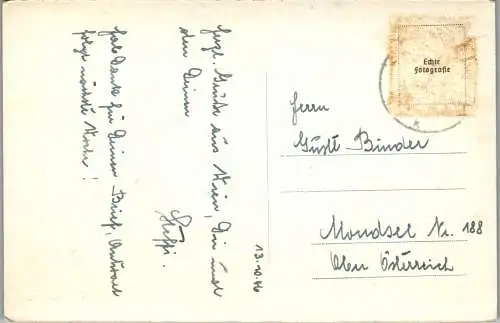 Herzl. Grüße aus Wien, Dir und
den Deinen
Steffi.
Habe Dank für Deinen Brief, Antwort
folgt nächste Woche!
13.10.46
Echte
Fotografie
Herrn
Gustl Binder
Mondsee Nr. 188
Ober Österreich